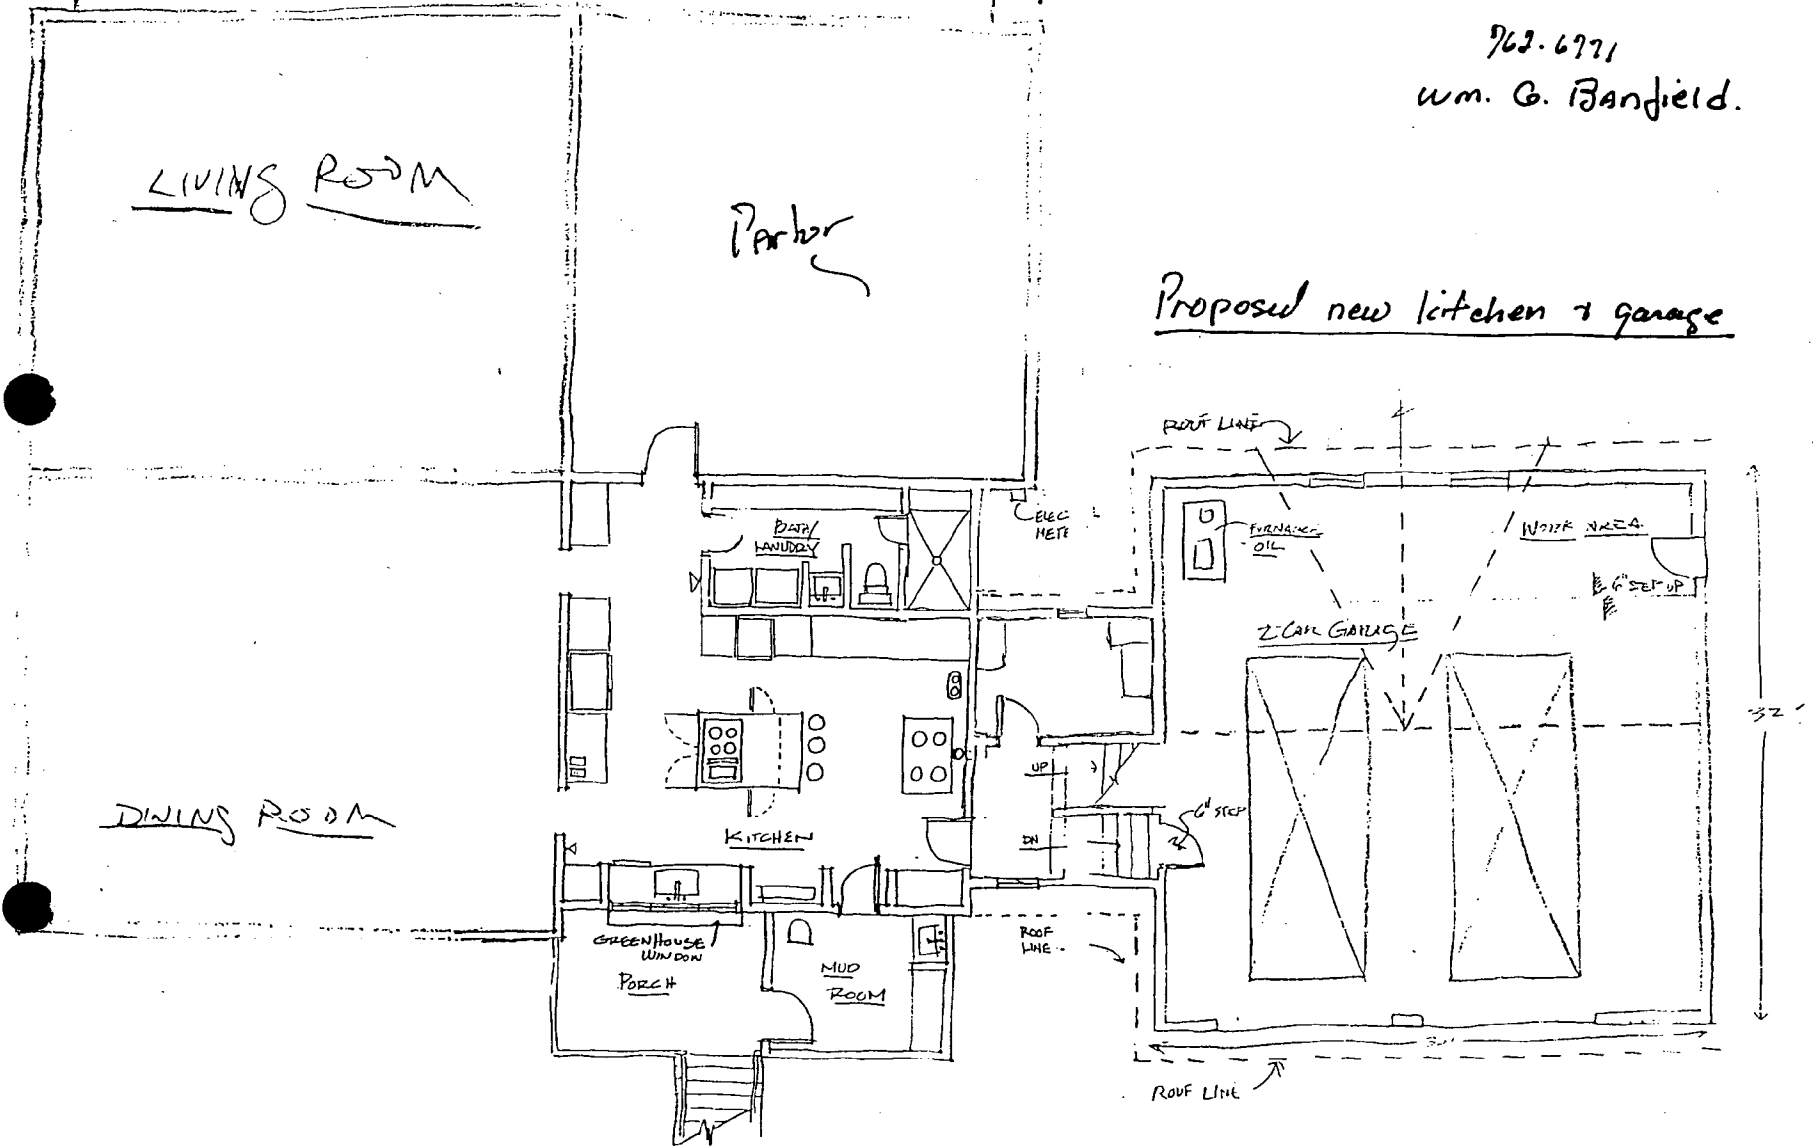 762.6771
Wm. G. Banfield.
LIVING ROOM
Parlor
Proposed new kitchen & garage
ROOF LINE
ELEC
METE
BATH/
LAUNDRY
FURNACE
OIL
WORK AREA
6" STEP UP
2 CAR GARAGE
32'
UP
6" STEP
DN
DINING ROOM
KITCHEN
GREENHOUSE
WINDOW
PORCH
MUD
ROOM
ROOF
LINE
ROOF LINE